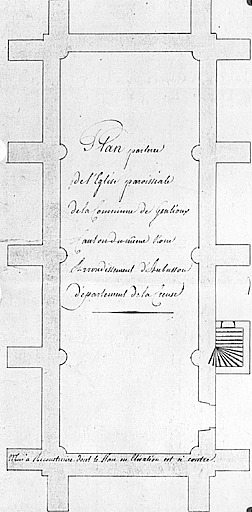 Plan par terre
De l'Eglise paroissiale
de la Commune de Gentioux
Canton du même Nom
Arrondissement d'Aubusson
Département de la Creuse
Mur à Reconstruire dont le Plan en Elévation est ci contre